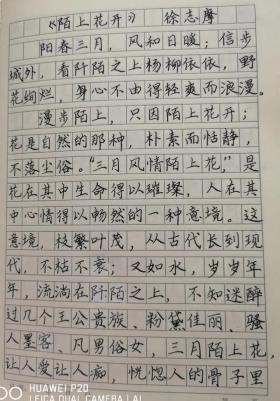 《陌上花开》 徐志摩
阳春三月，风和日暖；信步
城外，看阡陌之上杨柳依依，野
花绚烂，身心不由得轻爽而浪漫。
漫步陌上，只因陌上花开；
花是自然的那种，朴素而恬静，
不落尘俗。“三月风情陌上花”，是
花在其中生命得以璀璨，人在其
中心情得以畅然的一种意境。这
意境，枝繁叶茂，从古代长到现
代，不枯不衰；又如水，岁岁年
年，流淌在阡陌之上，不知迷醉
过几个王公贵族、粉黛佳丽、骚
人墨客、凡男俗女，三月陌上花，
让人爱让人痴，恍惚人的骨子里
HUAWEI P20
LEICA DUAL CAMERA | AI